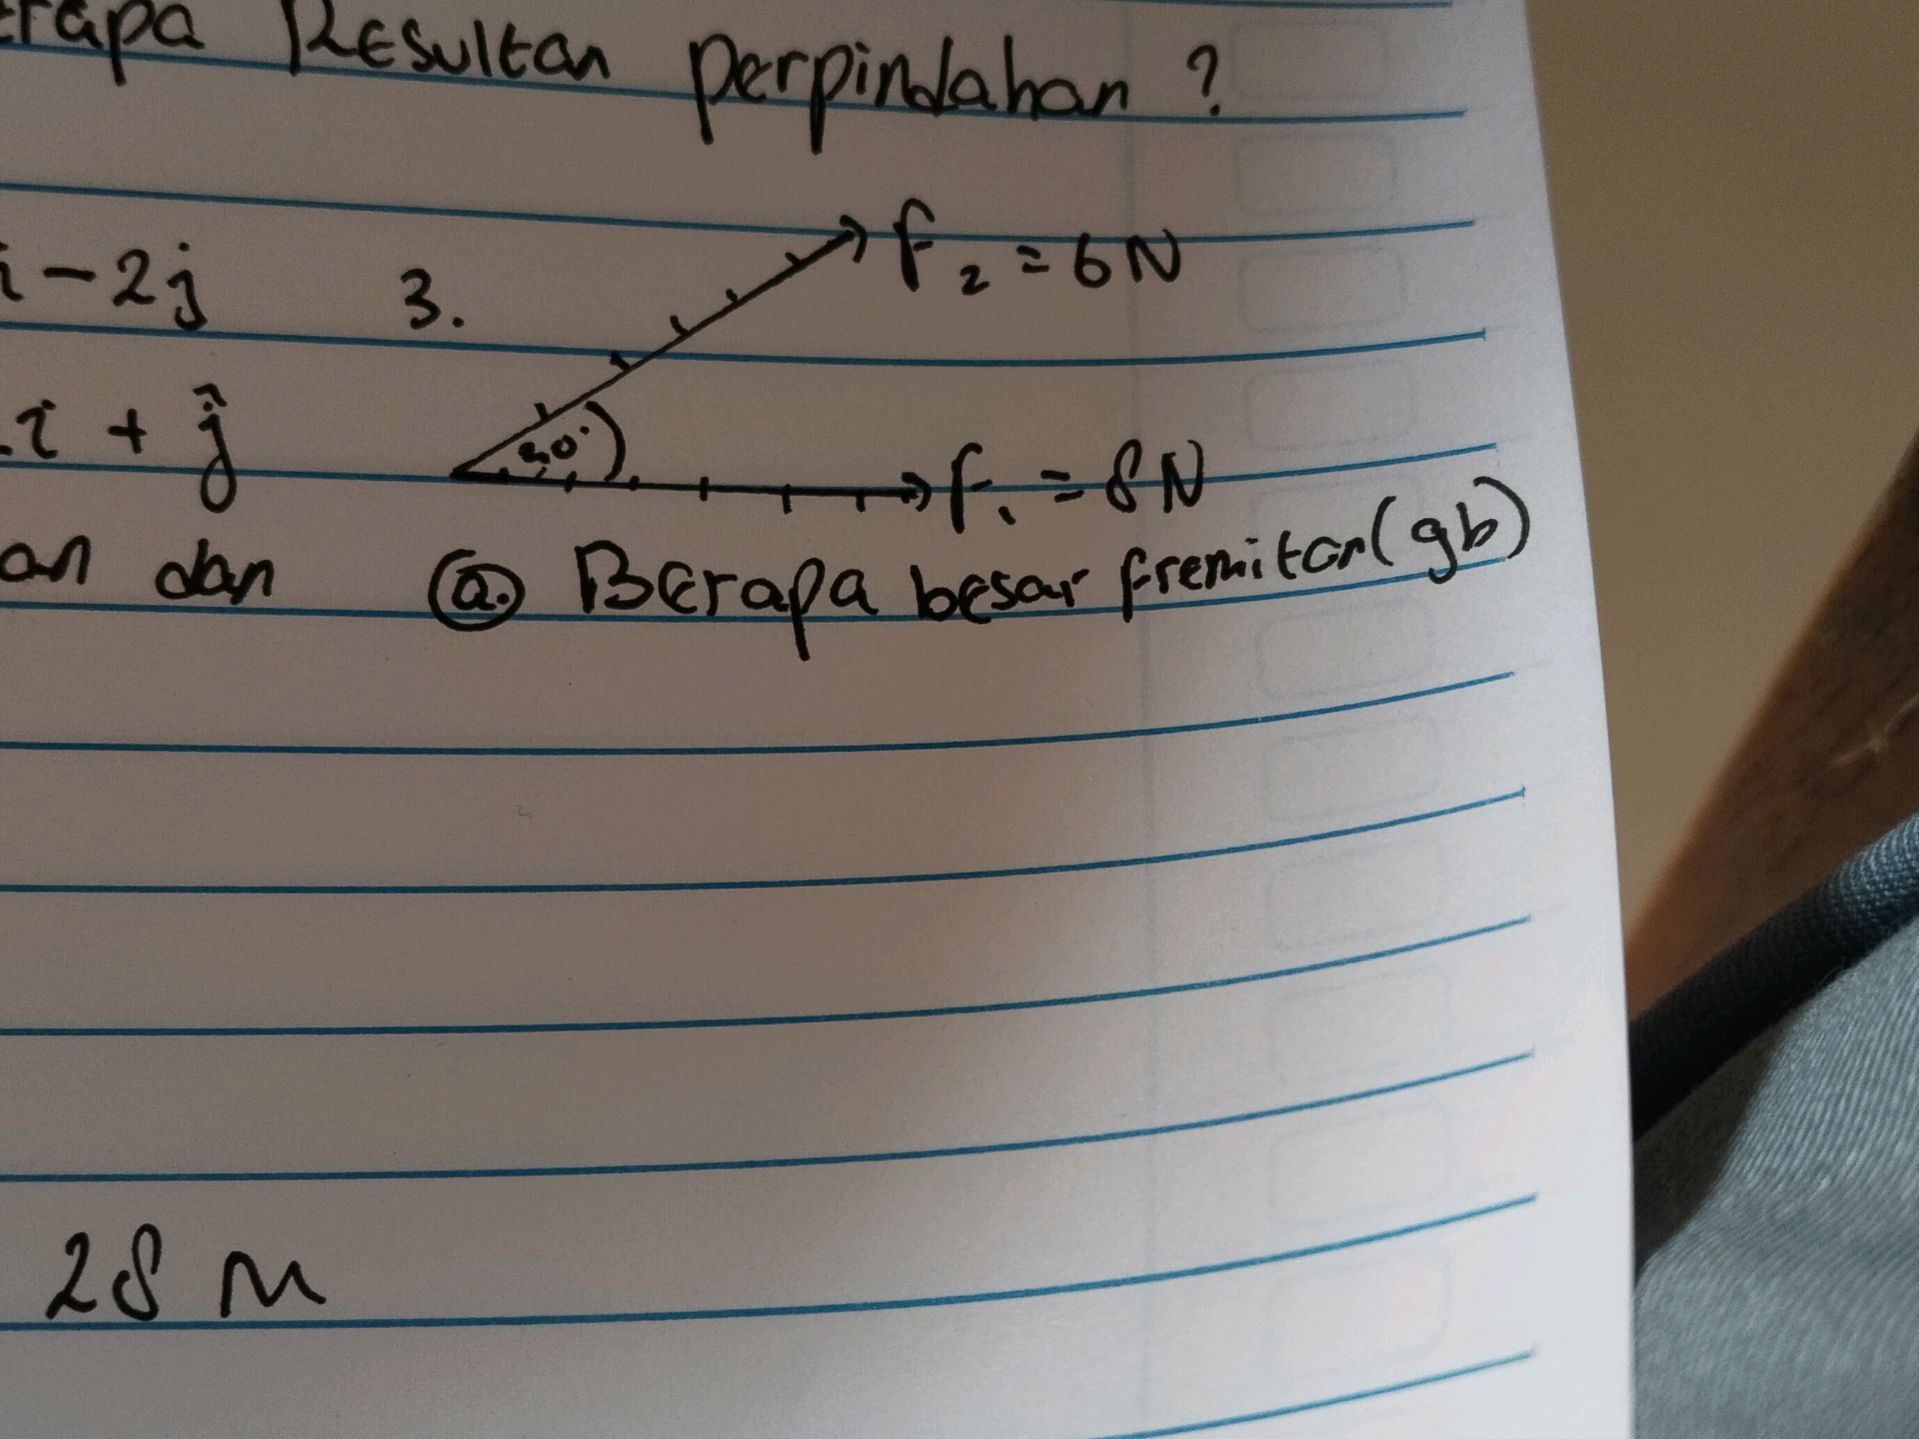 erapa Resultan perpindahan ?
i - 2j
3.
F2 = 6N
i + ĵ
30°
F1 = 8N
an dan
(a.) Berapa besar fremitan (gb)
28 m